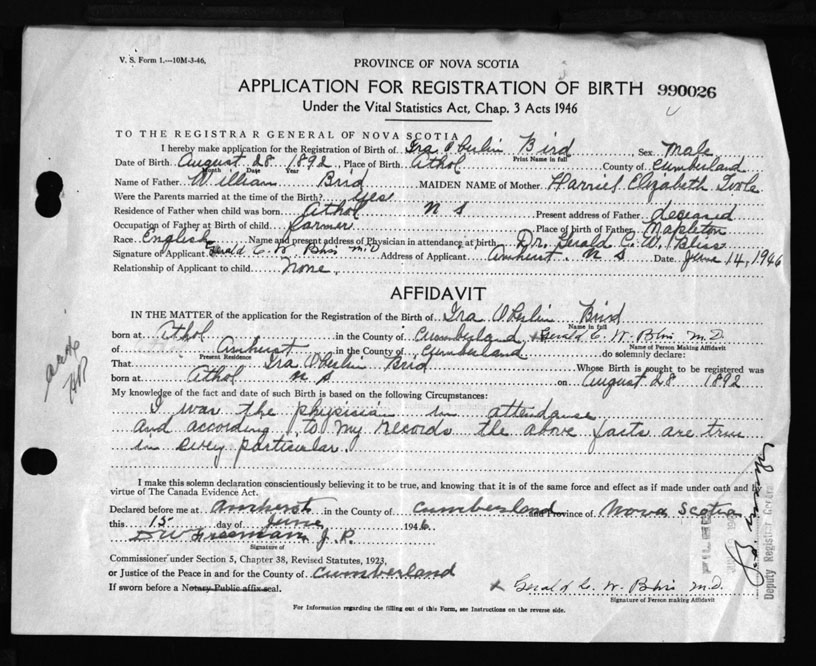 V. S. Form 1.—10M-3-46.
PROVINCE OF NOVA SCOTIA
APPLICATION FOR REGISTRATION OF BIRTH 990026
Under the Vital Statistics Act, Chap. 3 Acts 1946
TO THE REGISTRAR GENERAL OF NOVA SCOTIA
I hereby make application for the Registration of Birth of Ira Oberlin Bird, Sex Male
Print Name in full
Date of Birth August 28 1892, Place of Birth Athol County of Cumberland
Month Date Year
Name of Father William Brid MAIDEN NAME of Mother Harriet Elizabeth
Were the Parents married at the time of the Birth? Yes
Residence of Father when child was born Athol N S Present address of Father deceased
Occupation of Father at Birth of Child farmer Place of birth of Father Mapleton
Race English Name and present address of Physician in attendance at birth Dr. Gerald C. W. Bliss
Signature of Applicant Gerald C. W. Bliss M.D Address of Applicant Amherst. N S Date June 14, 1946
Relationship of Applicant to child None.
AFFIDAVIT
IN THE MATTER of the application for the Registration of the Birth of Ira Oberlin Brid
Name in full
born at Athol in the County of Cumberland, Gerald C. W. Bliss M.D.
Name of Person Making Affidavit
of Amherst in the County of Cumberland do solemnly declare:
Present Residence
That Ira Oberlin Brid Whose Birth is sought to be registered was
born at Athol N S on August 28 1892
My knowledge of the fact and date of such Birth is based on the following Circumstances:
I was the physician in attendance
and according to my records the above facts are true
in every particular.
I make this solemn declaration conscientiously believing it to be true, and knowing that it is of the same force and effect as if made under oath and by
virtue of The Canada Evidence Act.
Declared before me at Amherst in the County of Cumberland and Province of Nova Scotia
this 15 day of June 1946.
D W Freeman J. P.
Signature of
Commissioner under Section 5, Chapter 38, Revised Statutes, 1923,
or Justice of the Peace in and for the County of Cumberland
If sworn before a Notary Public affix seal.
X Gerald C. W. Bliss M.D.
Signature of Person making Affidavit
For Information regarding the filling out of this Form, see Instructions on the reverse side.
FILED
Deputy Registrar General